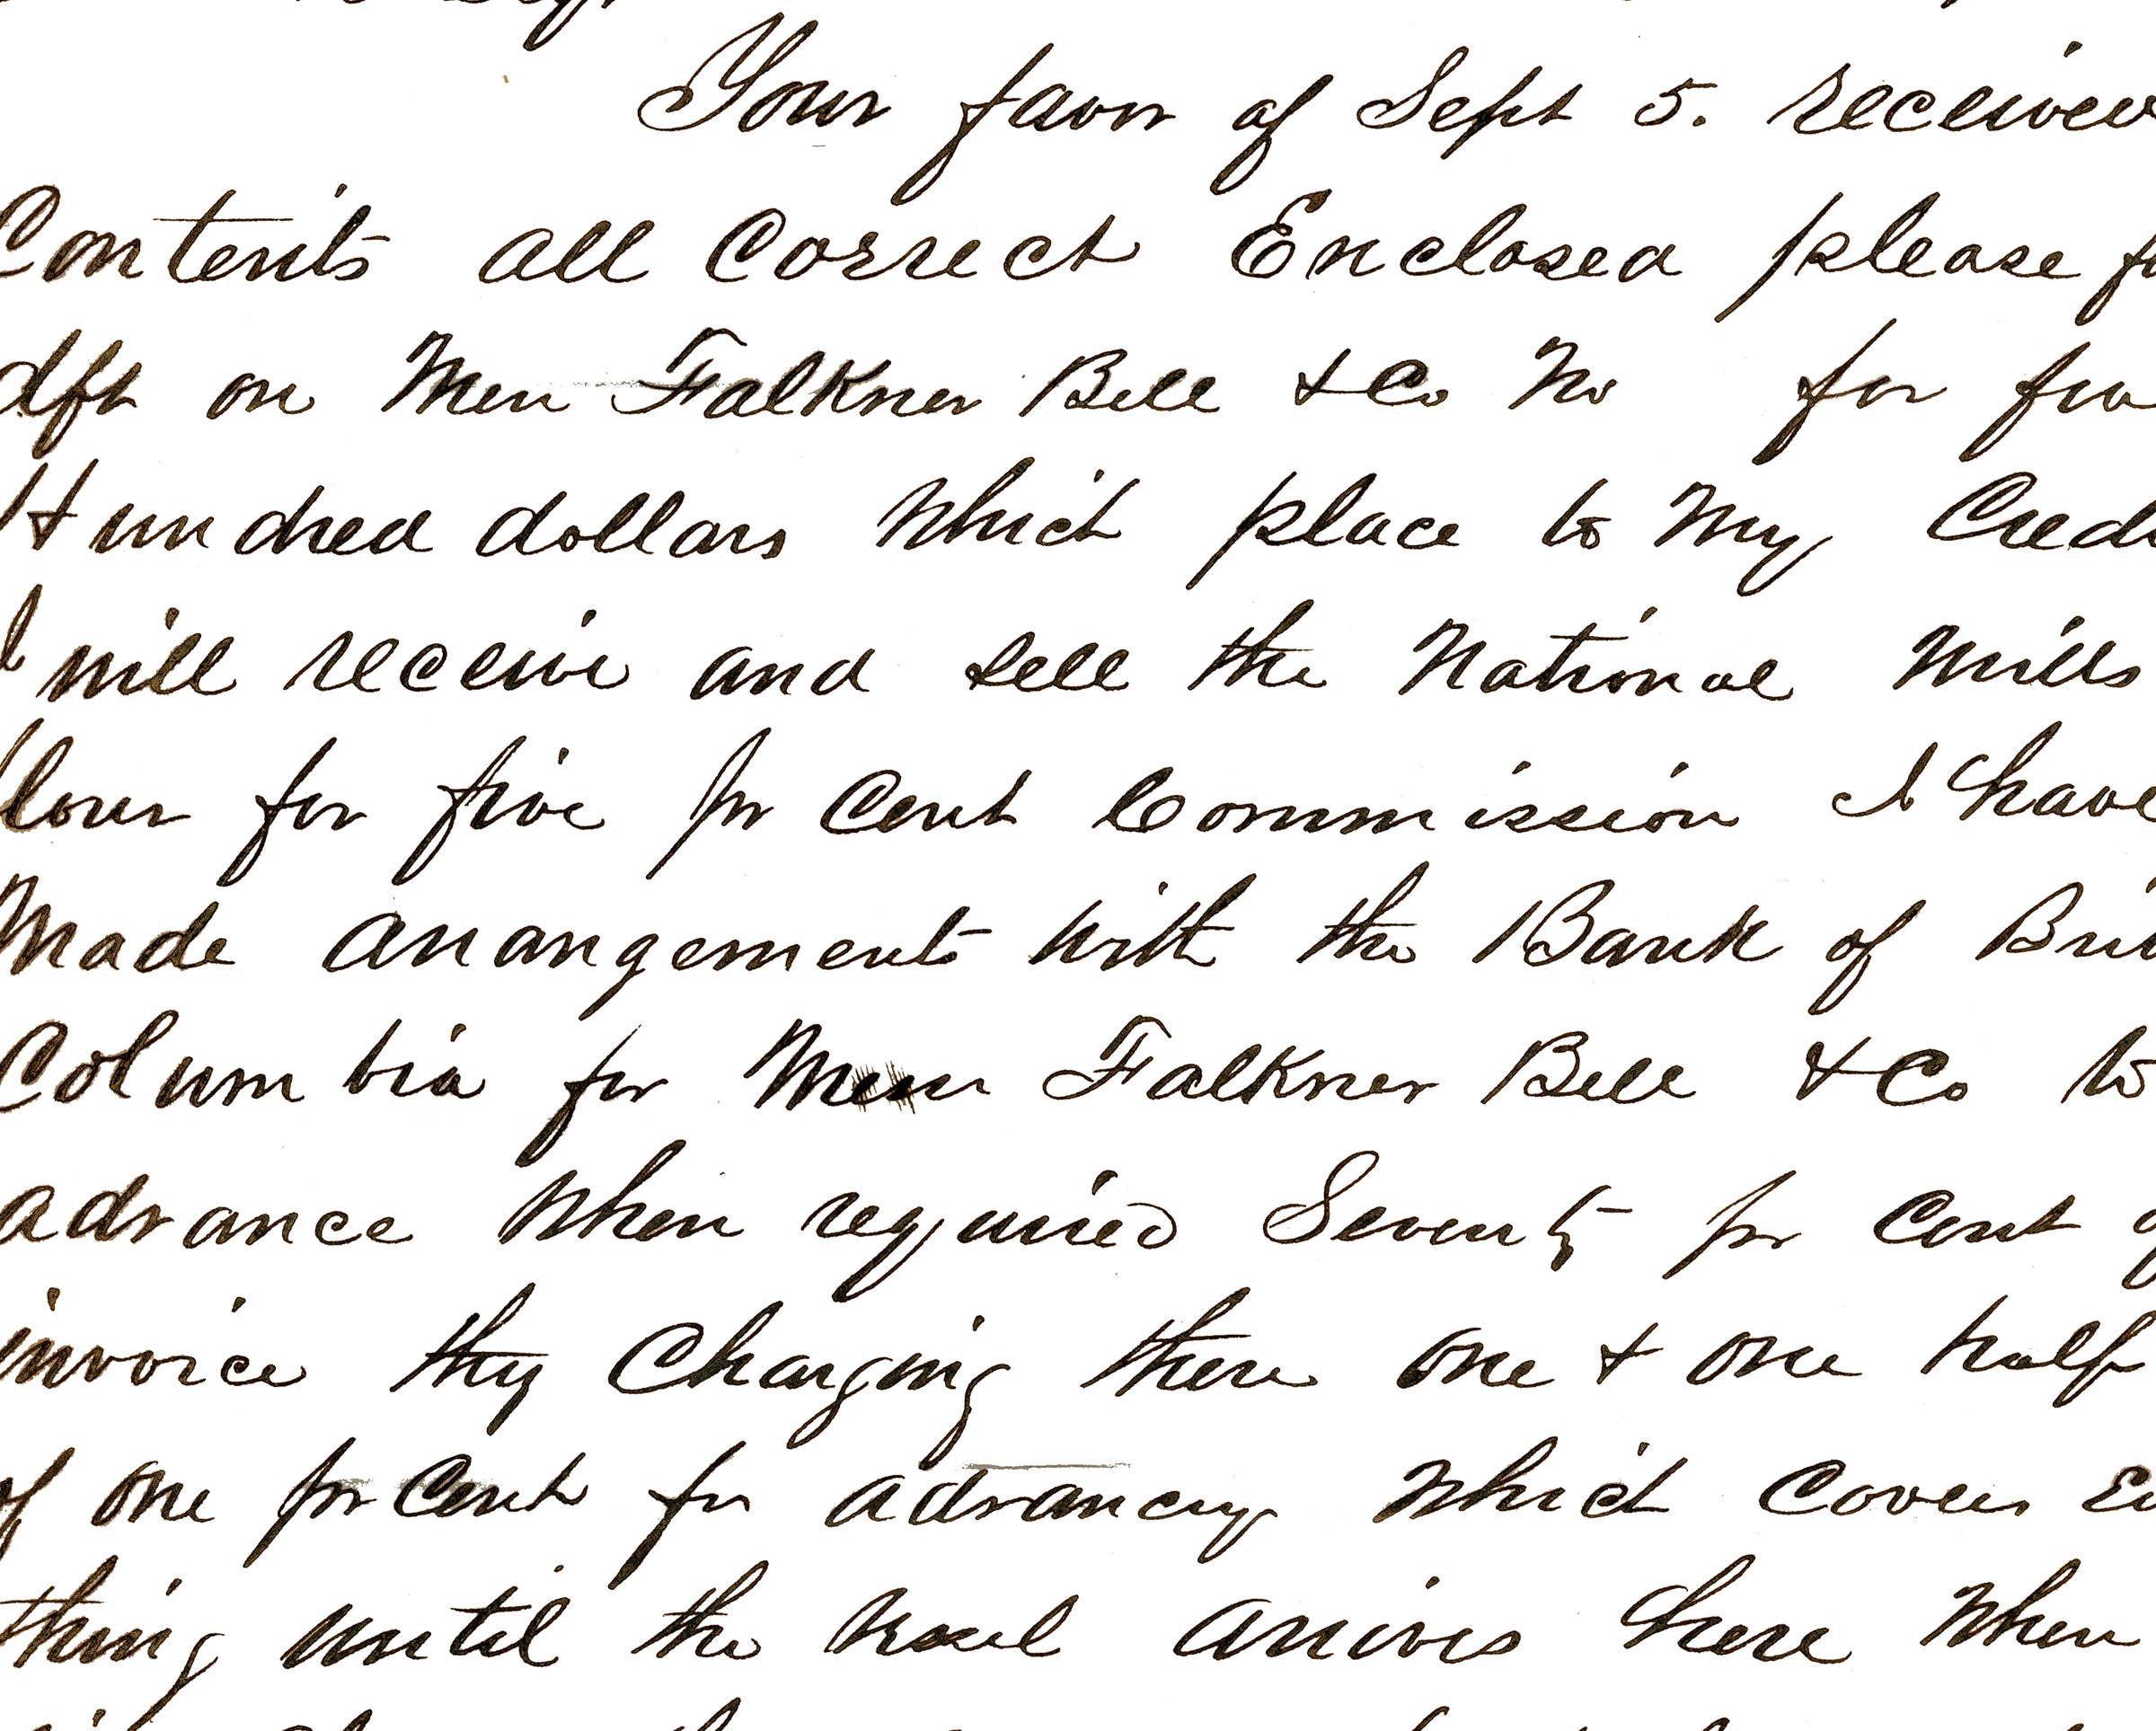 Your favor of Sept 5. received
Contents all Correct Enclosed please
dft on Falkner Bell & Co No for
Hundred dollars which place to My
I will receive and sell the National Mills
flour for five pr Cent Commission I have
Made arrangements with the Bank of
Columbia for Falkner Bell & Co to
advance when required Seventy pr Cent
invoice they Charging there one & one half
of one pr Cent for advancing which Covers
thing until the vessel arrives here When